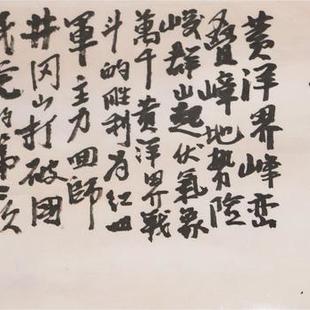 黄洋界峰峦
叠嶂地势险
峻群山起伏氣象
萬千黄洋界战
斗的胜利为红四
軍主力回師
井冈山打破国
民党的第二次